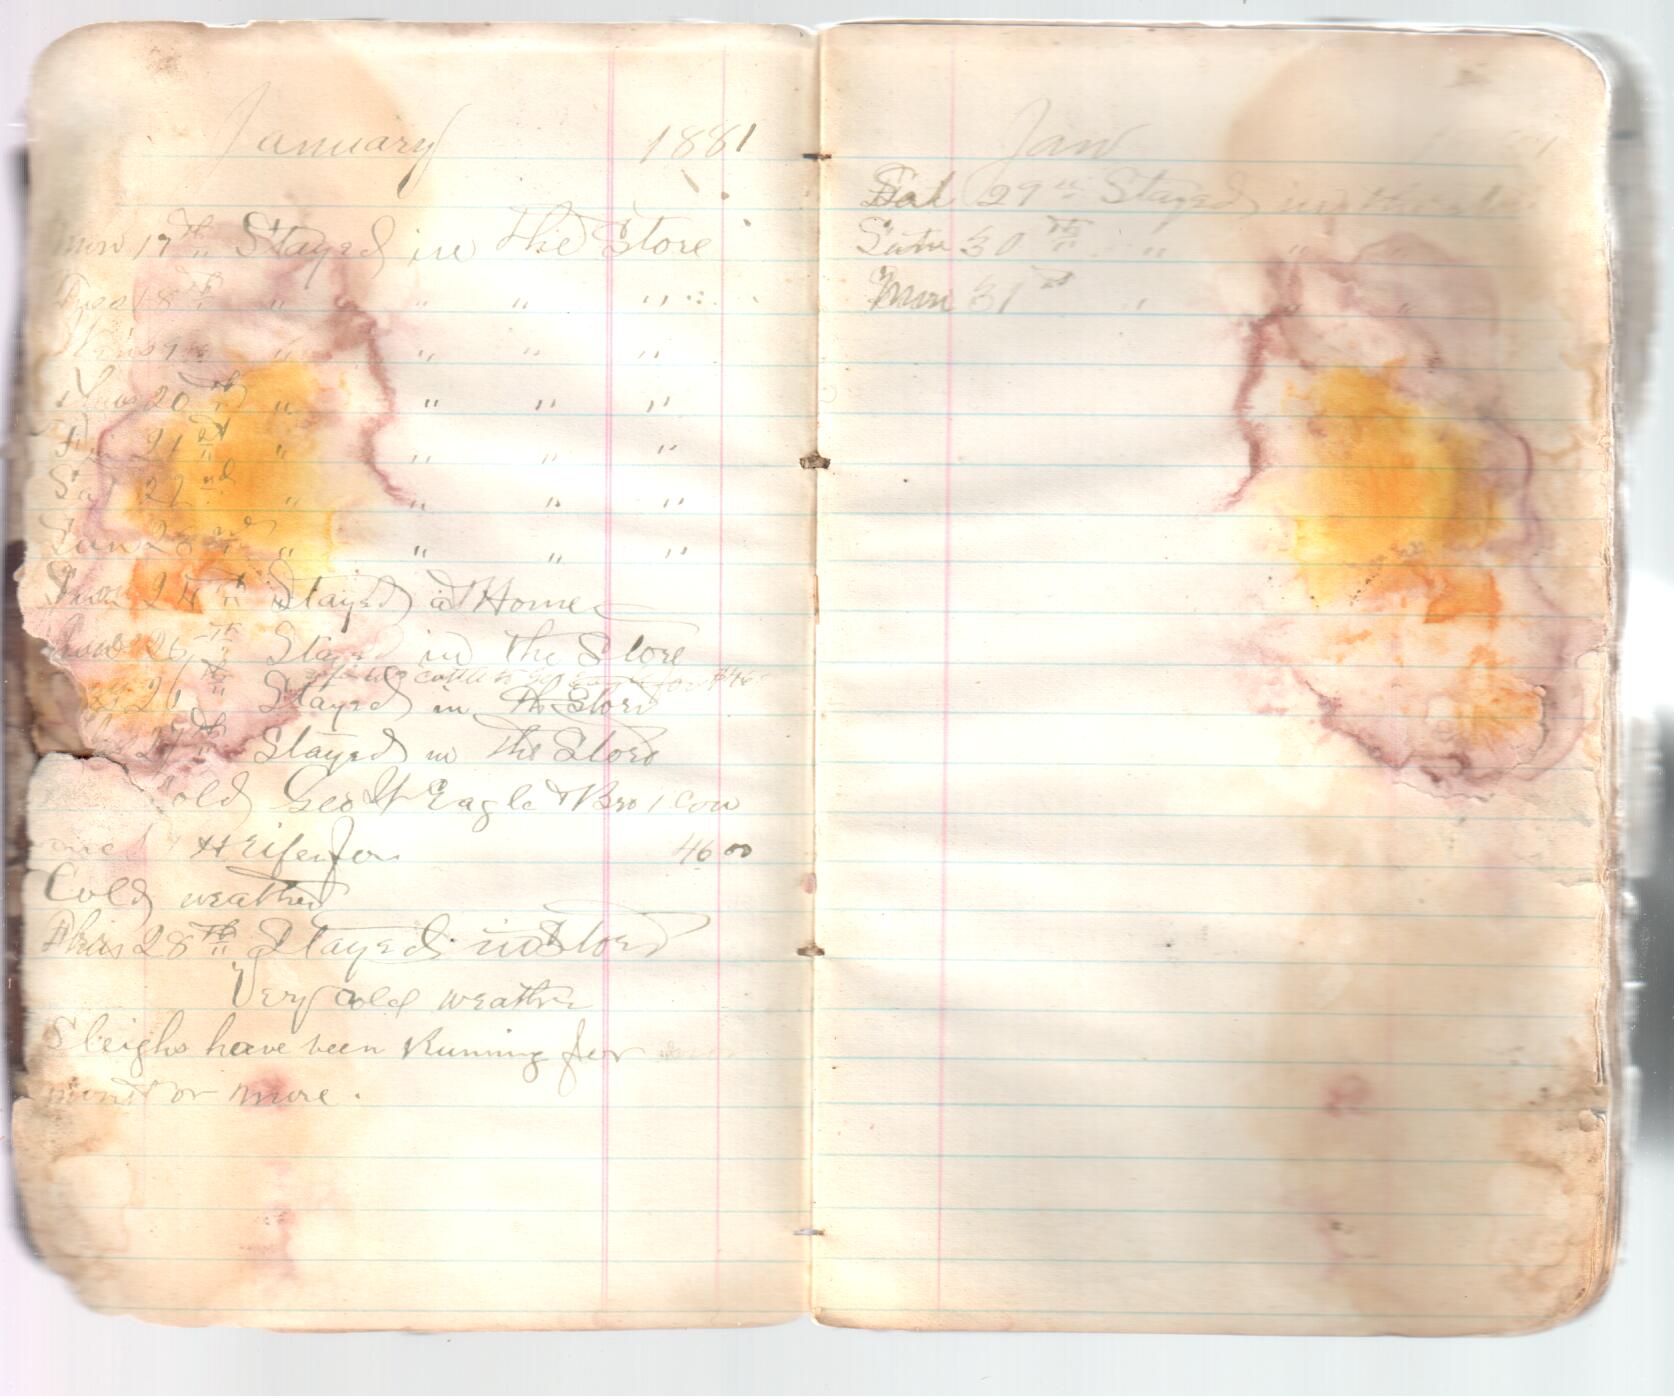 January 1881
Mon 17th Stayed in the Store
Tues 18th " " " "
19th " " " "
Thurs 20th " " " "
Fri 21st " " " "
Sat 22nd " " " "
Sun 23rd " " " "
24th Stayed at Home
Stayed in the Store
cattle to for $46
Stayed in the Store
27th Stayed in the Store
old Geo W Eagle & Bro 1 Cow
Heifer for 46 00
Cold weather
28th Stayed in Store
Very cold weather
Sleighs have been Running for
or more.
Jan
Sat 29th Stayed in
Sun 30th " "
Mon 31st " "